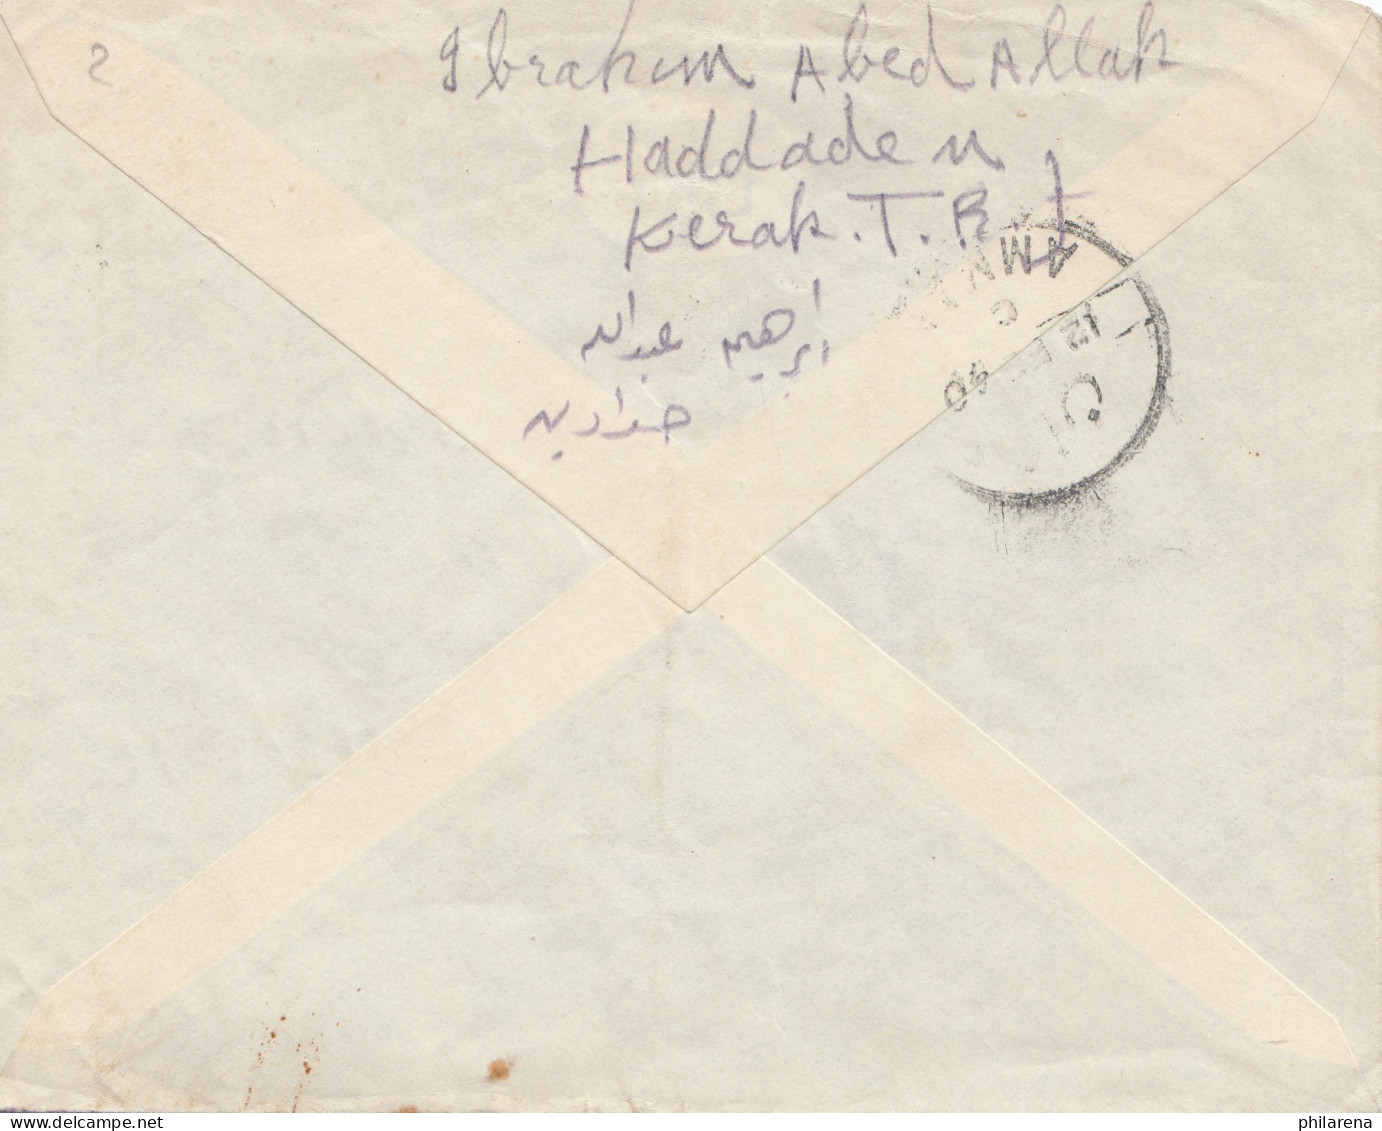 2
Ibrahim Abed Allah
Haddaden
Kerak. T. R. J
ابرهيم عبدالله
حدادين
AMMAN
12 F
40
philarena